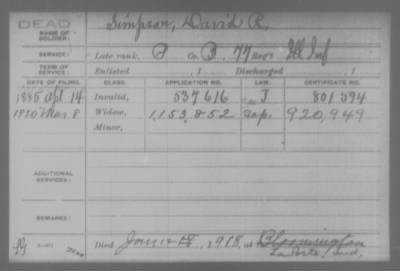 DEAD
NAME OF SOLDIER: Simpson, David R.
SERVICE: Late rank, Co. B, 77 Reg't Ill Inf
TERM OF SERVICE: Enlisted , 1 Discharged , 1
DATE OF FILING. CLASS. APPLICATION NO. LAW. CERTIFICATE NO.
1885 Apl 14 Invalid, 537616 J 801594
1920 Mar 8 Widow, 1,153,852 920,949
Minor,
ADDITIONAL SERVICES:
REMARKS:
Died Jan 1918, at Bloomington
La Porte, Ind.